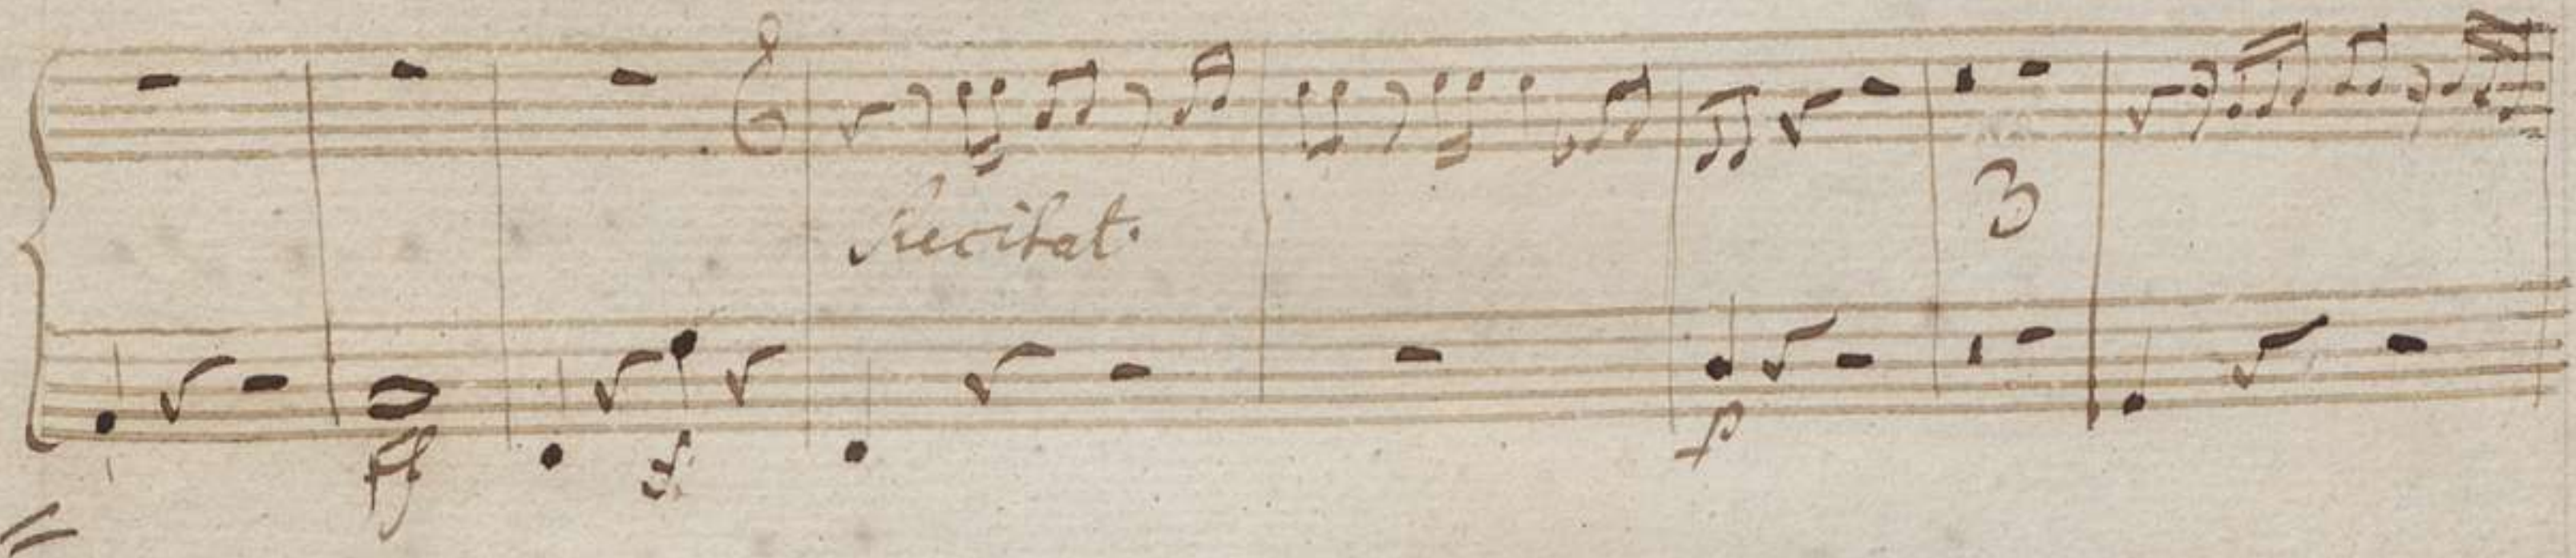 Recitat.
3
ff f. p